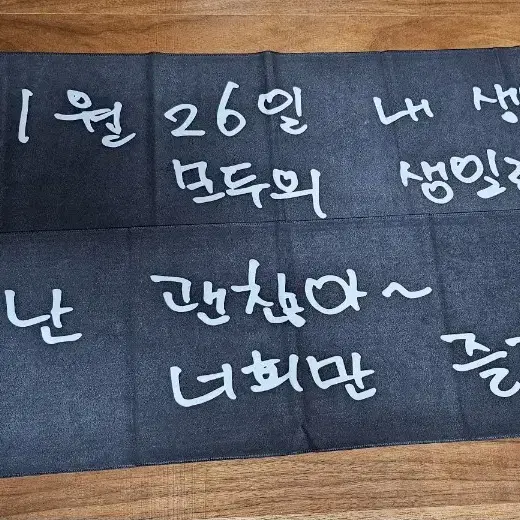 1월 26일 내 생
모두의 생일
난 괜찮아~
너희만 즐